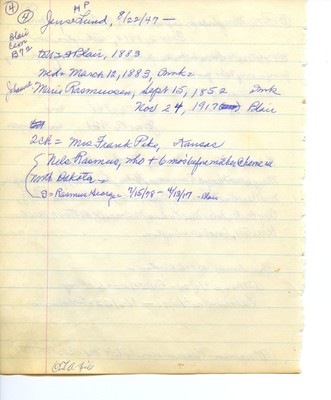 4 4 HP
Jens Lund, 8/22/47 —
Blair
Cem
B72
Blair, 1883
Md = March 12, 1883, Dmk =
Johanne Marie Rasmussen, Sept 15, 1852 Dmk
Nov 24, 1917 Blair
2 ch = Mrs Frank Pike, Kansas
Nels Rasmus, who + 6 mos before mother, Chem in
North Dakota —
S = Rasmus George = 9/15/78 - 4/13/17 - Blair